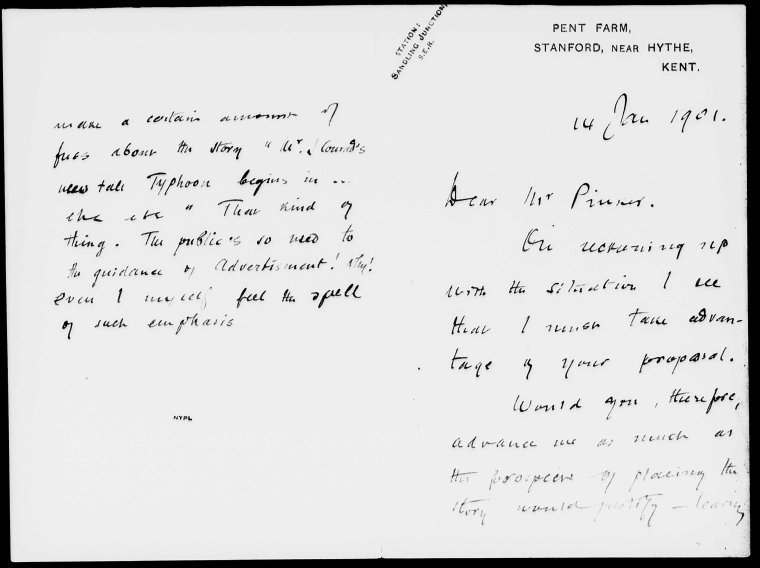 PENT FARM,
STANFORD, NEAR HYTHE,
KENT.
STATION:
SANDLING JUNCTION,
S.E.R.
14 Jan 1901.
Dear Mr Pinker.
On reckoning up
with the situation I see
that I must take advan-
tage of your proposal.
Would you, therefore,
advance me as much as
the prospects of placing the
story would justify – leaving
make a certain amount of
fuss about the story "Mr. J Conrad's
new tale Typhoon begins in ..
etc etc" That kind of
thing. The public's so used to
the guidance of Advertisment! Why!
even I myself feel the spell
of such emphasis
NYPL